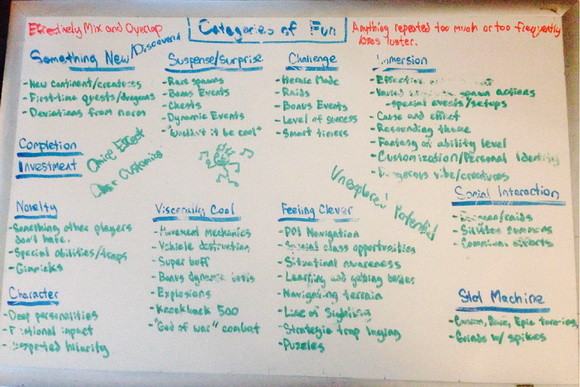 Effectively Mix and Overlap
Categories of Fun
Anything repeated too much or too frequently
loses luster.
Something New/Discovered
- New continent/creatures
- First-time quests/dungeons
- Deviations from norms
Suspense/Surprise
- Rare spawns
- Bonus Events
- Chests
- Dynamic Events
- "Wouldn't it be cool"
Challenge
- Heroic Mode
- Raids
- Bonus Events
- Level of success
- Smart timers
Immersion
- Effective
spawn actions
- special events/setups
- Cause and effect
- Responding theme
- Fantasy on ability level
- Customization/Personal Identity
- Dangerous vibe/creatures
Completion
Investment
Effect
Customize
Unexplored Potential
Novelty
- Something other players
don't have.
- Special abilities/
- Gimmicks
Viscerally Cool
- Movement mechanics
- Vehicle destruction
- Super buff
- Bonus dynamic
- Explosions
- Knockback 500
- "God of war" combat
Feeling Clever
- POI Navigation
- Special class opportunities
- Situational awareness
- Learning and getting better
- Navigating terrain
- Line of Sighting
- Strategic trap laying
- Puzzles
Social Interaction
/raids
- summons
- efforts
Character
- Deep personalities
- Emotional impact
- hilarity
Slot Machine
- Common, Rare, Epic
- Grinds w/ spikes